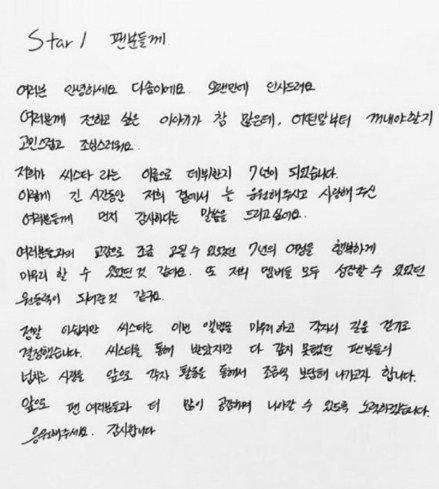 Star 1 팬분들께
여러분 안녕하세요 다솜이에요. 오랜만에 인사드려요
여러분께 전하고 싶은 이야기가 참 많은데, 어떤말부터 꺼내야할지
고민스럽고 조심스러워요.
저희가 씨스타 라는 이름으로 데뷔한지 7년이 되었습니다.
이렇게 긴 시간동안 저희 곁에서 늘 응원해주시고 사랑해 주신
여러분들께 먼저 감사하다는 말씀을 드리고 싶어요.
여러분들과의 교감으로 조금 고될 수 있었던 7년의 여정을 행복하게
마무리 할 수 있었던 것 같아요. 또 저희 멤버들 모두 성장할 수 있었던
원동력이 되어준 것 같구요.
정말 아쉽지만 씨스타는 이번 앨범을 마무리하고 각자의 길을 걷기로
결정했습니다. 씨스타를 통해 받았지만 다 갚지 못했던 팬분들의
넘치는 사랑을 앞으로 각자 활동을 통해서 조금씩 보답해 나가고자 합니다.
앞으로 팬 여러분들과 더 많이 공감하며 나아갈 수 있도록 노력하겠습니다.
응원해주세요. 감사합니다